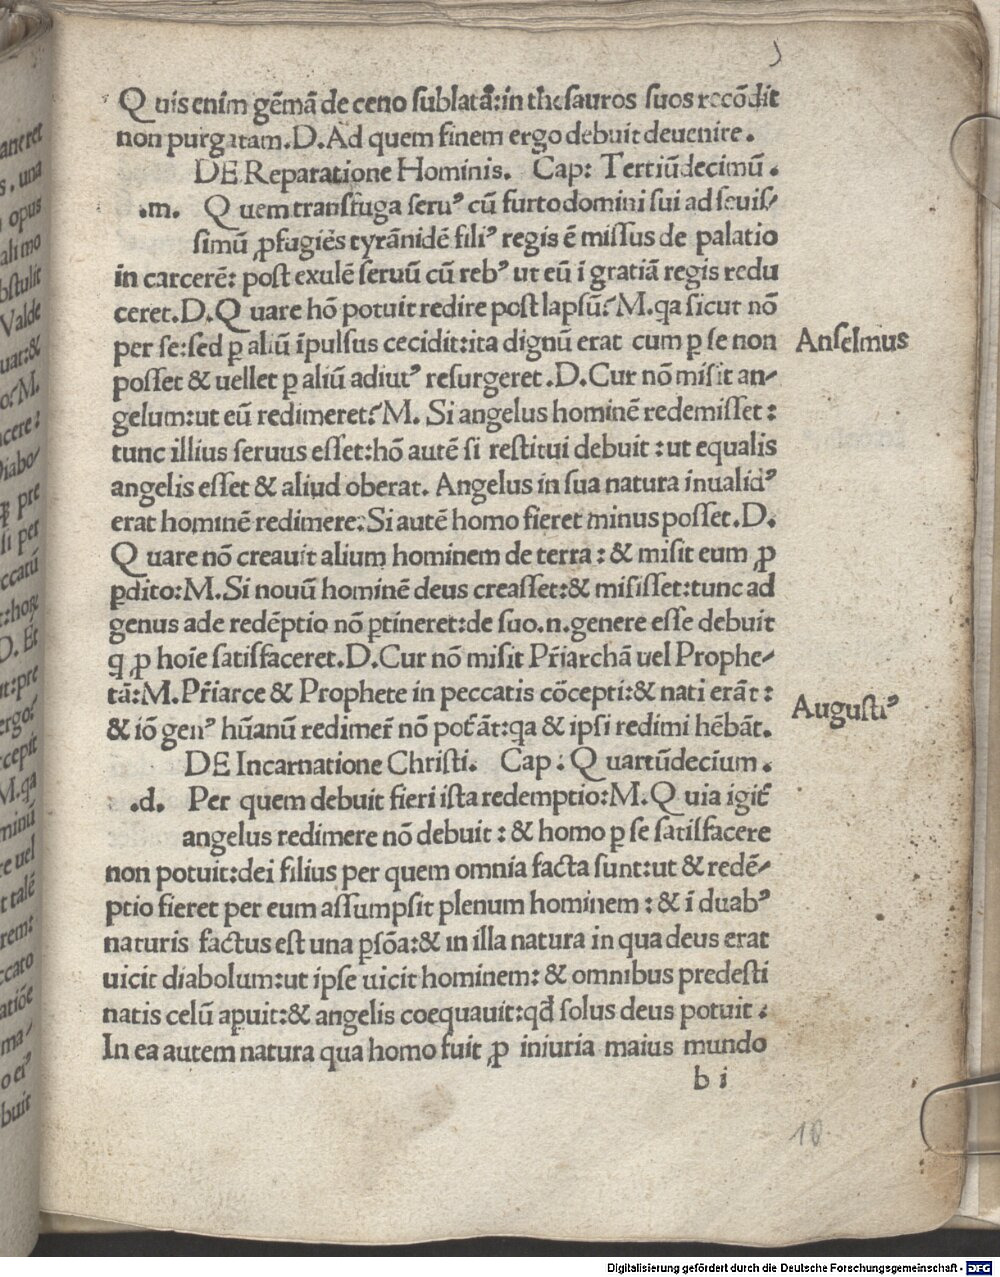 Q uis enim gēmā de ceno sublatā:in thesauros suos recōdit
non purgatam.D.Ad quem finem ergo debuit deuenire.
DE Reparatione Hominis. Cap: Tertiūdecimū.
.m. Q uem transfuga seruꝰ cū furto domini sui ad seuis/
simū ꝓfugiēs tyrānidē filiꝰ regis ē missus de palatio
in carcerē: post exulē seruū cū rebꝰ ut eū ī gratiā regis redu
ceret.D.Q uare hō potuit redire post lapsū? M.qa sicut nō
per se:sed ꝑ aliū īpulsus cecidit:ita dignū erat cum ꝑ se non
posset & uellet ꝑ aliū adiutꝰ resurgeret.D.Cur nō misit an/
gelum:ut eū redimeret? M. Si angelus hominē redemisset:
tunc illius seruus esset:hō autē si restitui debuit:ut equalis
angelis esset & aliud oberat. Angelus in sua natura inualidꝰ
erat hominē redimere:Si autē homo fieret minus posset.D.
Q uare nō creauit alium hominem de terra: & misit eum ꝓ
ꝑdito:M.Si nouū hominē deus creasset:& misisset:tunc ad
genus ade redēptio nō ꝑtineret:de suo.n.genere esse debuit
q̨ ꝓ hoīe satisfaceret.D.Cur nō misit Pr̄iarchā uel Prophe/
tā:M.Pr̄iarce & Prophete in peccatis cōcepti:& nati erāt:
& iō genꝰ hūanū redimer̄ nō pot̄āt:qa & ipsi redimi hēbāt.
DE Incarnatione Christi. Cap: Q uartūdecium.
.d. Per quem debuit fieri ista redemptio:M.Q uia igit̄
angelus redimere nō debuit: & homo ꝑ se satisfacere
non potuit:dei filius per quem omnia facta sunt:ut & redē/
ptio fieret per eum assumpsit plenum hominem: & ī duabꝰ
naturis factus est una ꝑsōa:& in illa natura in qua deus erat
uicit diabolum:ut ipse uicit hominem: & omnibus predesti
natis celū apuit:& angelis coequauit:qđ solus deus potuit:
In ea autem natura qua homo fuit ꝓ iniuria maius mundo
b i
Anselmus
Augustiꝰ
10
Digitalisierung gefördert durch die Deutsche Forschungsgemeinschaft - DFG